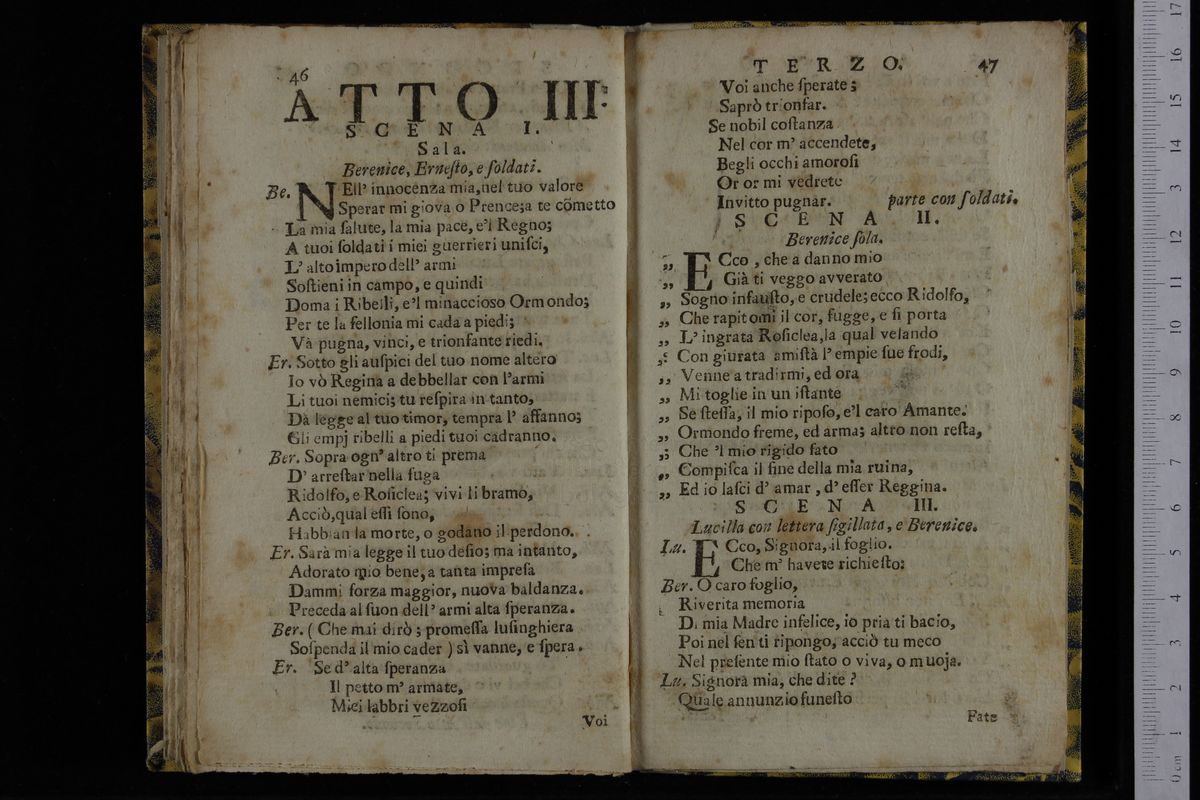 46
ATTO III.
SCENA I.
Sala.
Berenice, Erneſto, e ſoldati.
Be. NEll' innocenza mia, nel tuo valore
Sperar mi giova o Prence; a te cõmetto
La mia ſalute, la mia pace, e'l Regno;
A tuoi ſoldati i miei guerrieri uniſci,
L' alto impero dell' armi
Soſtieni in campo, e quindi
Doma i Ribelli, e'l minaccioso Ormondo;
Per te la fellonia mi cada a piedi;
Và pugna, vinci, e trionfante riedi.
Er. Sotto gli auſpici del tuo nome altero
Io vò Regina a debbellar con l'armi
Li tuoi nemici; tu reſpira in tanto,
Dà legge al tuo timor, tempra l' affanno;
Gli empj ribelli a piedi tuoi cadranno.
Ber. Sopra ogn' altro ti prema
D' arreſtar nella fuga
Ridolfo, e Roſiclea; vivi li bramo,
Acciò, qual eſſi ſono,
Habbian la morte, o godano il perdono.
Er. Sarà mia legge il tuo deſio; ma intanto,
Adorato mio bene, a tanta impreſa
Dammi forza maggior, nuova baldanza.
Preceda al ſuon dell' armi alta ſperanza.
Ber. ( Che mai dirò; promeſſa luſinghiera
Soſpenda il mio cader ) sì vanne, e ſpera.
Er. Se d' alta ſperanza
Il petto m' armate,
Miei labbri vezzoſi
Voi
TERZO. 47
Voi anche ſperate;
Saprò trionfar.
Se nobil coſtanza
Nel cor m' accendete,
Begli occhi amoroſi
Or or mi vedrete
Invitto pugnar. parte con ſoldati.
SCENA II.
Berenice ſola.
„ ECco, che a danno mio
„ Già ti veggo avverato
„ Sogno infauſto, e crudele; ecco Ridolfo,
„ Che rapitomi il cor, fugge, e ſi porta
„ L' ingrata Roſiclea, la qual velando
„ Con giurata amiſtà l' empie ſue frodi,
„ Venne a tradirmi, ed ora
„ Mi toglie in un iſtante
„ Se ſteſſa, il mio ripoſo, e'l caro Amante.
„ Ormondo freme, ed arma; altro non reſta,
„ Che 'l mio rigido fato
„ Compiſca il fine della mia ruina,
„ Ed io laſci d' amar, d' eſſer Reggina.
SCENA III.
Lucilla con lettera ſigillata, e Berenice.
Lu. ECco, Signora, il foglio.
Che m' havete richieſto:
Ber. O caro foglio,
Riverita memoria
Di mia Madre infelice, io pria ti bacio,
Poi nel ſen ti ripongo, acciò tu meco
Nel preſente mio ſtato o viva, o muoja.
Lu. Signora mia, che dite?
Quale annunzio funeſto
Fate
0 cm 1 2 3 4 5 6 7 8 9 10 11 12 13 14 15 16 17